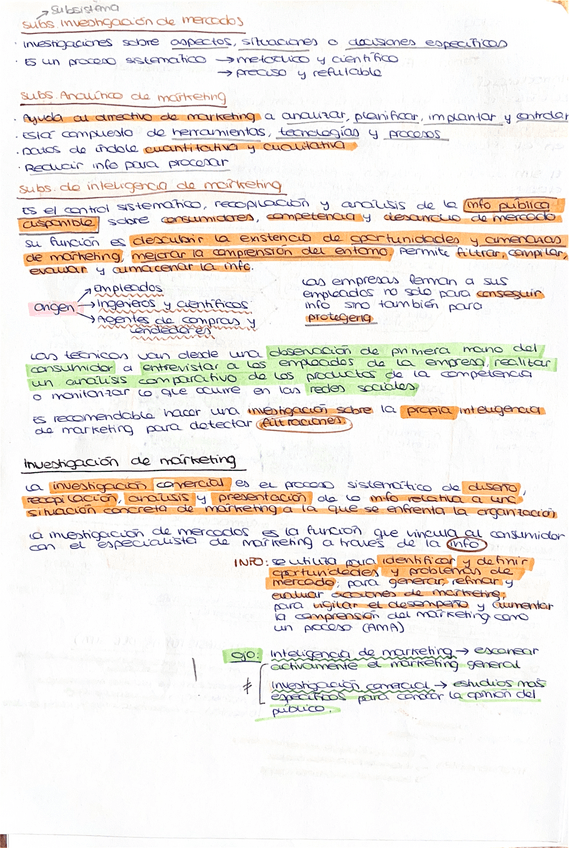 subsistema
Subs investigación de mercados
· Investigaciones sobre aspectos, situaciones o decisiones específicas
· Es un proceso sistemático → metódico y científico
→ preciso y refutable
Subs. Analítico de márketing
· Ayuda al directivo de marketing a analizar, planificar, implantar y controlar
· Está compuesto de herramientas, tecnologías y procesos
· Datos de índole cuantitativa y cualitativa
· Reducir info para procesar
Subs. de inteligencia de márketing
Es el control sistemático, recopilación y análisis de la info pública
disponible sobre consumidores, competencia y desarrollo de mercado
su función es descubrir la existencia de oportunidades y amenazas
de márketing, mejorar la comprensión del entorno. Permite filtrar, compilar,
evaluar y almacenar la info.
origen
→ empleados
→ Ingenieros y científicos
→ Agentes de compras y
vendedores
Las empresas forman a sus
empleados no solo para conseguir
info sino también para
protegerla
Las técnicas van desde una observación de primera mano del
consumidor a entrevistar a los empleados de la empresa, realizar
un análisis comparativo de los productos de la competencia
o monitorizar lo que ocurre en las redes sociales
Es recomendable hacer una investigación sobre la propia inteligencia
de marketing para detectar filtraciones
Investigación de márketing
La investigación comercial es el proceso sistemático de diseño,
recopilación, análisis y presentación de la info relativa a una
situación concreta de márketing a la que se enfrenta la organización
La investigación de mercados es la función que vincula al consumidor
con el especialista de márketing a través de la info
INFO: se utiliza para identificar y definir
oportunidades y problemas de
mercado; para generar, refinar y
evaluar acciones de márketing;
para vigilar el desempeño y aumentar
la comprensión del márketing como
un proceso (AMA)
go: Inteligencia de márketing → escanear
activamente el márketing general
≠ Investigación comercial → estudios más
específicos para conocer la opinión del
público.